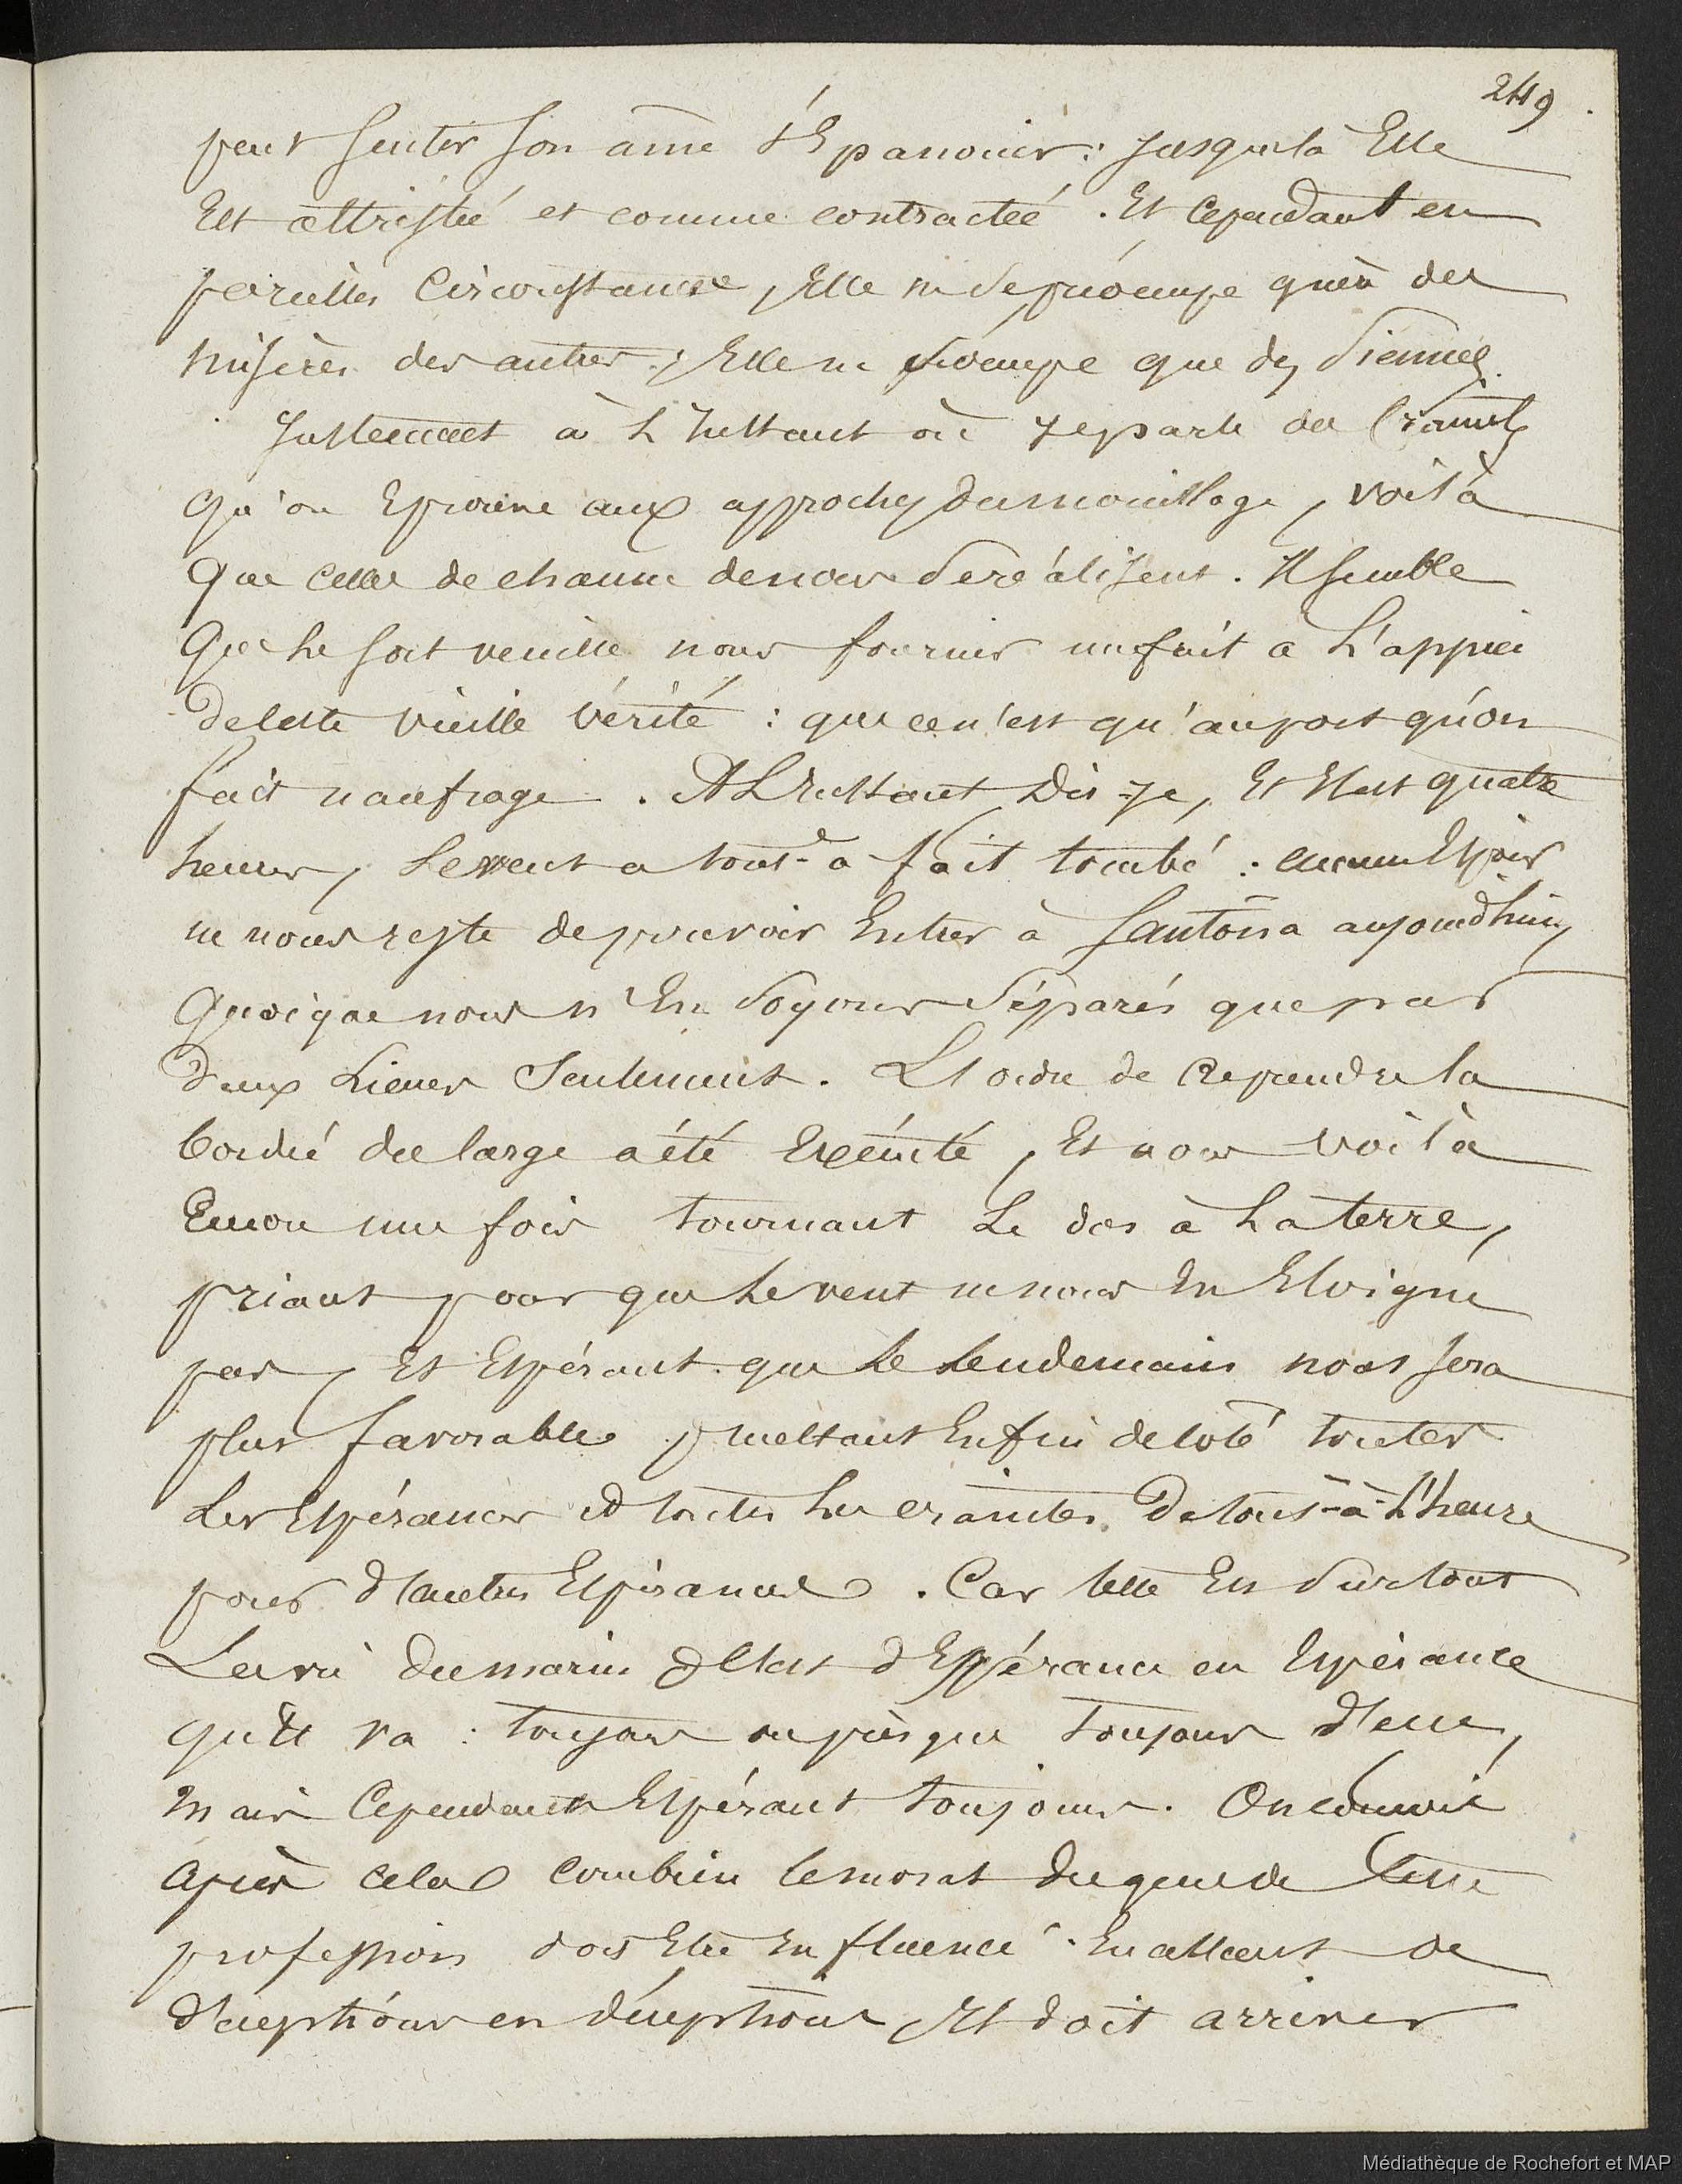 249
peut sentir son âme s'Epanouir : jusque là Elle
Est attristée et comme contractée. Et Cependant en
pareilles Circonstances, Elle ne se préoccupe guère des
misères des autres, Elle ne s'occupe que des siennes.
Justement à L'Instant où je parle des Craintes
qu'on Eprouve aux approches du mouillage, voilà
que celles de chacun de nous se réalisent. Il semble
que le sort veuille nous fournir un fait à L'appui
de cette vieille vérité : que ce n'est qu'au port qu'on
fait naufrage. A L'Instant Dis-je, Et Il est quatre
heures, Le vent a tout-à-fait tombé : aucun Espoir
ne nous reste de pouvoir Entrer à Santoña aujourd'hui,
Quoique nous n'En soyons séparés que par
deux Lieues Seulement. L'ordre de Reprendre la
bordée du large a été Exécuté, Et nous voilà
Encore une fois tournant Le dos à La terre,
priant pour que Le vent ne nous En Eloigne
pas, Et Espérant que Le Lendemain nous sera
plus favorable, mettant Enfin de coté toutes
Les Espérances et toutes Les craintes de tout-à-L'heure
pour d'autres Espérances. Car telle Est surtout
La vie du marin, c'Est d'Espérance en Espérance
qu'Il va : toujours ou presque toujours déçu,
mais Cependant Espérant toujours. On conçoit
après cela combien le moral des gens de Cette
profession doit Etre Influencé. En allant de
déceptions en déceptions, Il doit arriver
Médiathèque de Rochefort et MAP